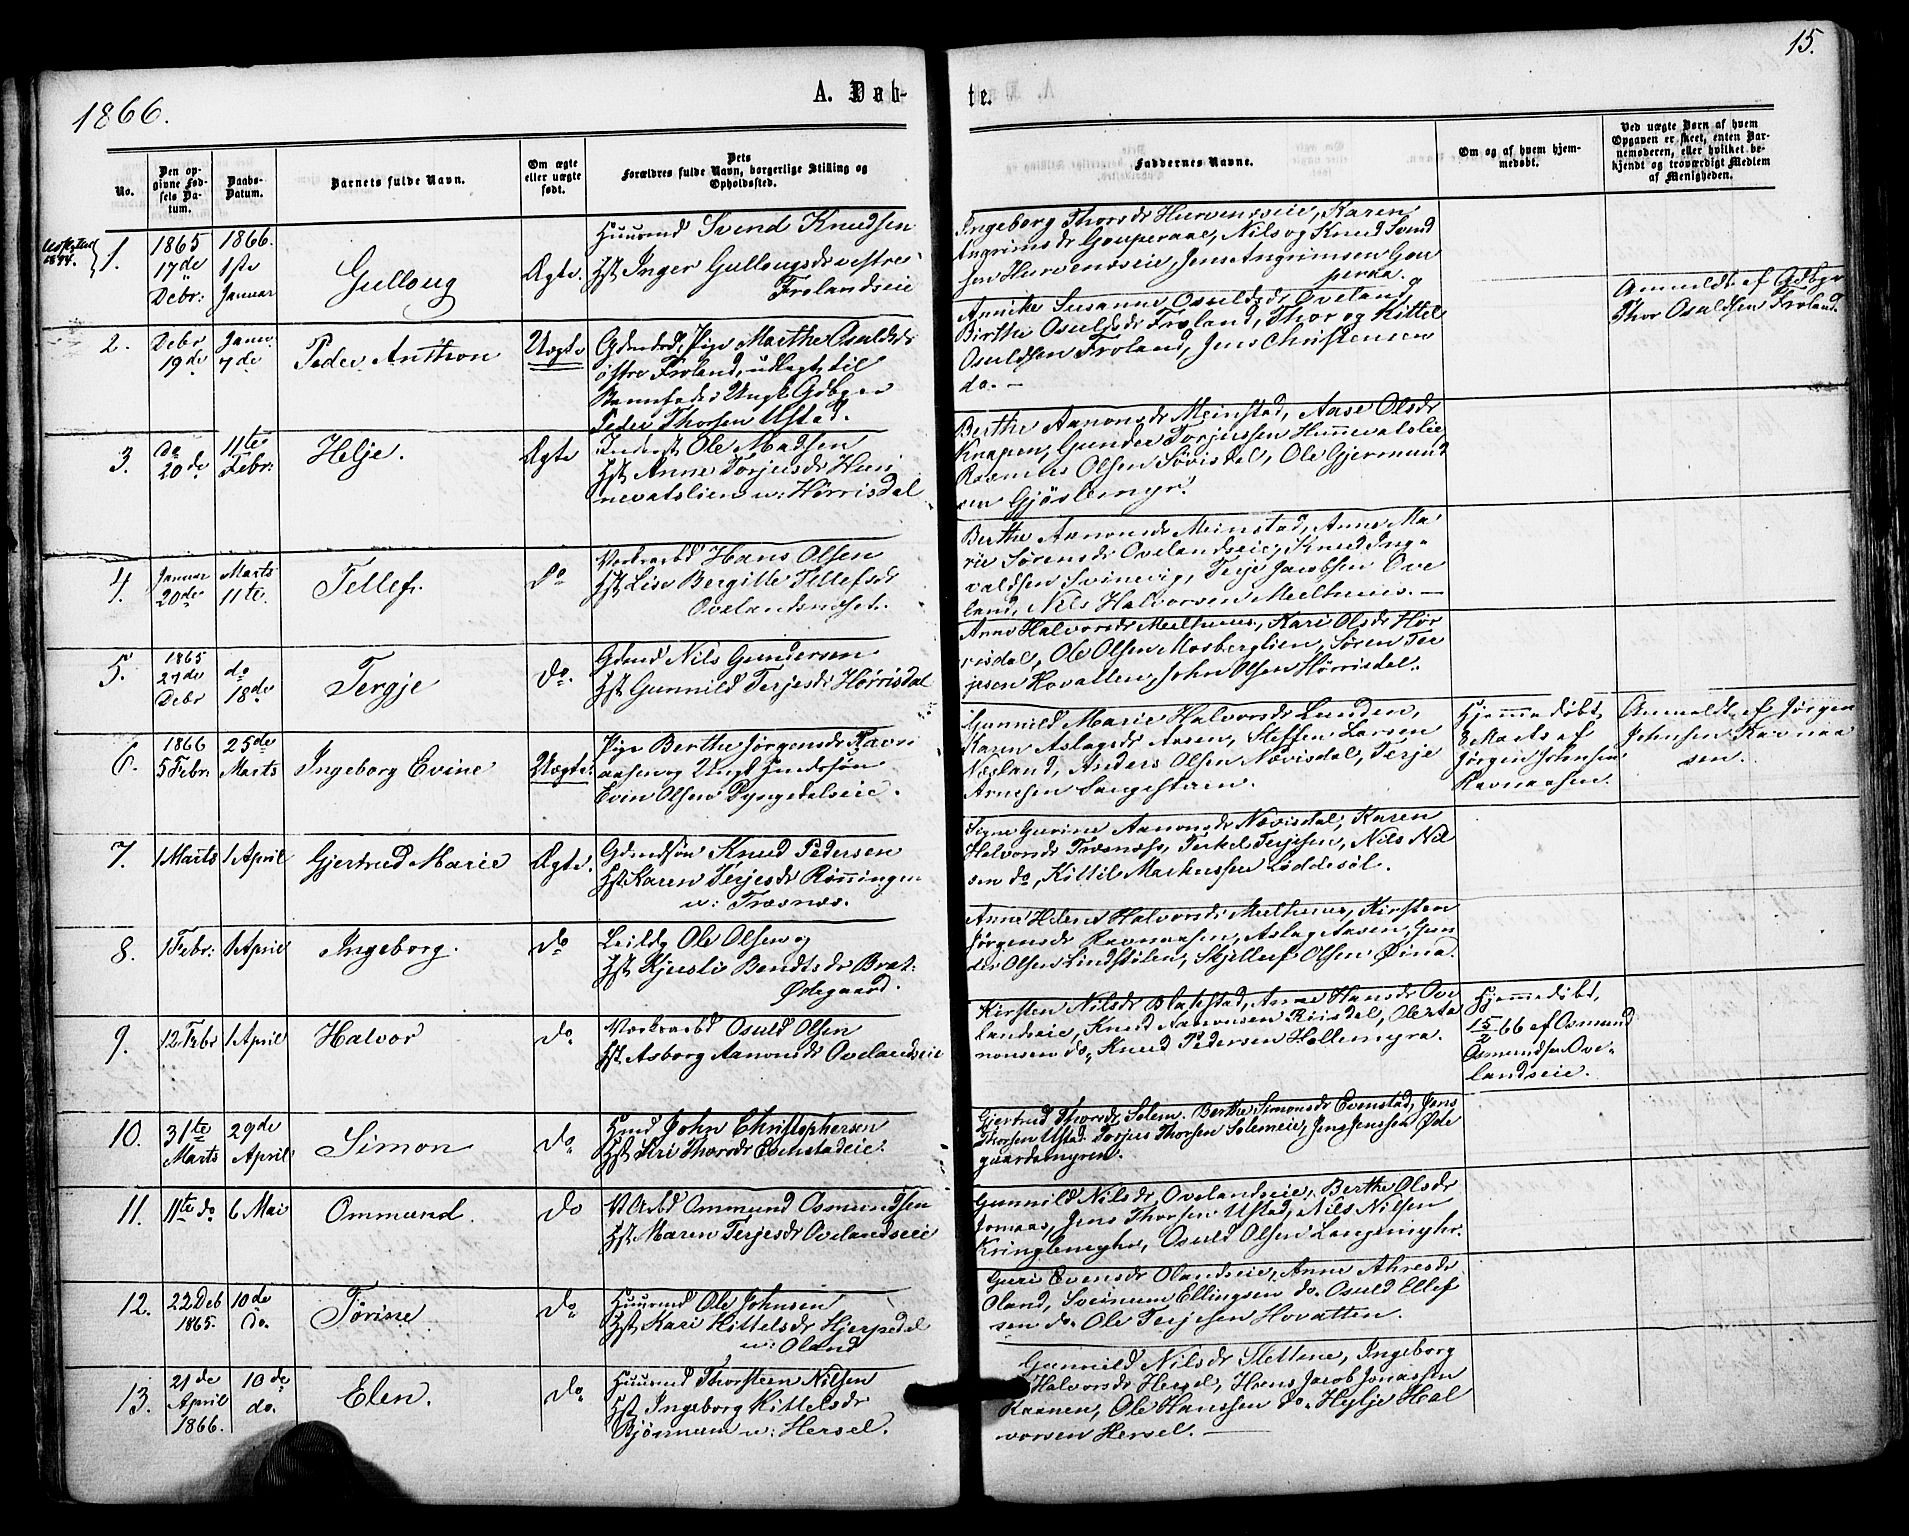 15.
1866.
A. Døb-
te.
No.
Den op-
givne Fød-
sels Da-
tum.
Daabs-
Datum.
Barnets fulde Navn.
Om ægte
eller uægte
født.
Dets
Forældres fulde Navn, borgerlige Stilling og
Opholdssted.
Faddernes Navne.
Om og af hvem hjem-
medøbt.
Ved uægte Børn af hvem
Opgaven er skeet, enten Bar-
nemoderen, eller hvilket be-
kjendt og troværdigt Medlem
af Menigheden.
1.
1865
17de
Debr:
1866.
1ste
Januar
Gulloug
Ægte
Huusmd Svend Knudsen
Hst Inger Gullougsdr vestre
Frolandseie
Ingeborg Thorsdr Hurvenæseie, Karen
Angrimsdr Gouperaae, Nils og Knud Svend
sen Hurvenæseie, Jens Angrimsen Gou
peraa.
2.
Debr
19de
Janv.
7de
Peder Anthon
Uægte
Gdmdsd, Pige Marthe Osuldsdr
østre Froland, udlagt til
Barnefader Ungk Gdbgr
Peder Thorsen Ustad.
Annike Susanne Osuldsdr Oveland
Birthe Osuldsdr Froland, Thor og Kittel
Osuldsen Froland, Jens Christensen
do. —
Anmeldt af Gdbgr
Thor Osuldsen Froland.
3.
Do
20de
11te
Febr:
Helje.
Ægte
Inderst Ole Madsen
Hst Anne Torjusdr Hun
nevatslien u: Hørrisdal
Berthe Aanonsdr Meinstad, Aase Olsdr
Knapen, Gunder Torjussen Hunnevatslie,
Rasmus Olsen Søvisdal, Ole Gjermund
sen Gjøslemyr.
4.
Januar
20de
Marts
11te.
Tellef.
do
Verksarbd Hans Olsen
Hst Lise Bergitte Tellefsdr
Ovelandsnæset.
Berthe Aanonsdr Meinstad, Anne Ma
rie Sørensdr Ovelandseie, Knud Ing-
valdsen Svinevig, Terje Jacobsen Ove
land, Nils Halvorsen Meelhuus. —
5.
1865
27de
Debr
do
18de
Tergje
do.
Gdmd Nils Gundersen
Hst Gunnild Terjesdr Hørrisdal
Anne Halvorsdr Meelhuus, Kari Olsdr Hør
risdal, Ole Olsen Mosberglien, Søren Ter
jesen Hovatten, John Olsen Hørrisdal.
6.
1866
5 Febr:
25de
Marts
Ingeborg Evine
Uægte.
Pige Berthe Jørgensdr Ravn
aasen og Ungk Huusssøn
Evin Olsen Dyngedalseie.
Gunnild Marie Halvorsdr Lunden,
Karen Aslagsdr Aasen, Steffen Larsen
Næsland, Anders Olsen Nævisdal, Terje
Arnesen Langestøen.
Hjemmedøbt
8 Marts af
Jørgen Johnsen
Ravnaasen.
Anmeldt af Jørgen
Johnsen Ravnaa
sen.
7.
1 Marts
1 April
Gjertrud Marie
Ægte.
Gdmdsøn Knud Pedersen
Hst Karen Terjesdr Rønningen
u: Træsnæs.
Signe Gurine Aanonsdr Nævisdal, Karen
Halvorsdr Træsnæs, Terkel Terjesen, Nils Nil
sen do, Kittil Markussen Løddesøl.
8.
1 Febr:
1 April
Ingeborg.
do
Leildg Ole Olsen og
Hst Kjersti Bendtsdr Brat-
Ødegaard.
Anne Helene Halvorsdr Meelhuus, Kirsten
Jørgensdr Ravnaasen, Aslag Aasen, Gun
der Olsen Lindstølen, Skjellef Olsen Øina.
9.
12 Febr
1 April
Halvor
do
Verksarbd Osuld Olsen
Hst Asborg Aanonsdr Ovelandseie
Kirsten Nilsdr Blakstad, Anne Hansdr Ove
landseie, Knud Aanonsen Riisdal, Ole Aa
nonsen do, Knud Pedersen Hellemyra.
Hjemmedøbt,
15/2 66 af Osmund
Osmundsen Ove-
landseie.
10.
31te
Marts
29de
April
Simon
do.
Hmd John Christophersen
Hst Siri Thorsdr Evenstadeie.
Gjertrud Thorsdr Solem. Berthe Simonsdr Evenstad, Jens
Thorsen Ustad. Torjus Thorsen Solemeie, Jens Jenssen Øde
gaardsmyren.
11.
11te do
6 Mai
Ommund.
do
V Arbd Ommund Osmundsen
Hst Maren Terjesdr Ovelandseie
Gunnild Nilsdr Ovelandseie, Berthe Olsdr
Jomaas, Jens Thorsen Ustad, Nils Nilsen
Kringlemyhr, Osuld Olsen Langemyhr.
12.
22 Deb
1865.
10de
do.
Tørine
do.
Huusmd Ole Johnsen
Hst Kari Kittelsdr Hjerpedal
u: Oland
Guri Evensdr Olandseie, Anne Ahresdr
Oland, Sveinum Ellingsen do. Osuld Ellef
sen do. Ole Terjesen Hovatten.
13.
21de
April
1866.
10de
do.
Elen.
do.
Huusmd Thorsteen Nilsen
Hst Ingeborg Kittelsdr
Bjørnum u: Hersel.
Gunnild Nilsdr Slettene, Ingeborg
Halvorsdr Hersel, Hans Jacob Jonassen
Raanen, Ole Hanssen do. Hylje Hal
vorsen Hersel. —